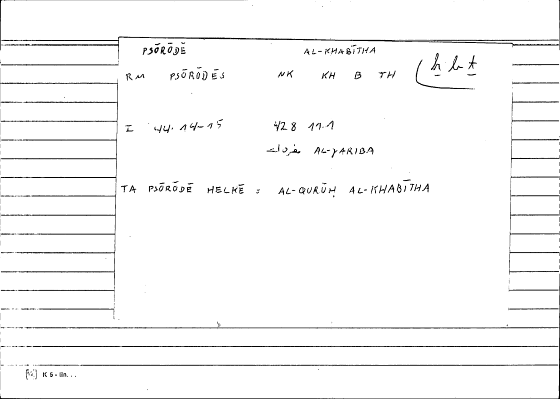 PSŌRŌDĒ AL-KHABĪTHA
RM PSŌRŌDĒS NK KH B TH (ḫ b ṯ
I 44.14-15 428 11.1
مفردات AL-γARIBA
TA PSŌRŌDĒ HELKĒ : AL-QURŪḤ AL-KHABĪTHA
K 5 - IIn...